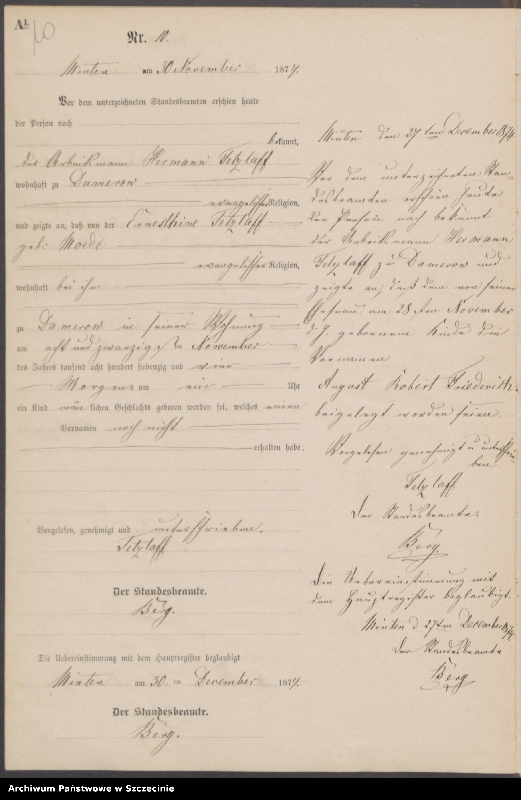 A
10
Nr. 10.
Minten am 30 November 1874.
Vor dem unterzeichneten Standesbeamten erschien heute
der Person nach
bekannt,
der Arbeitsmann Hermann Tetzlaff
wohnhaft zu Damerow
evangelischer Religion,
und zeigte an, daß von der Ernesthine Tetzlaff
geb.
evangelischer Religion,
wohnhaft bei ihm
zu Damerow in seiner Wohnung
am acht und zwanzigsten November
des Jahres tausend acht hundert siebenzig und vier
Morgens um ein Uhr
ein Kind männlichen Geschlechts geboren worden sei, welches einen
Vornamen noch nicht
erhalten habe.
Vorgelesen, genehmigt und unterschrieben.
Tetzlaff
Der Standesbeamte.
Berg.
Die Uebereinstimmung mit dem Hauptregister beglaubigt
Minten am 30. ten December 1874.
Der Standesbeamte.
Berg.
Minten den 27 ten December 1874
Vor dem unterzeichneten Stan-
desbeamten erschien heute
der Person nach bekannt
der Arbeitsmann Hermann
Tetzlaff zu Damerow und
zeigte an, daß dem von seiner
Ehefrau am 28 ten November
d. J. geborenem Kinde die
Vornamen
August Robert Friederich
beigelegt worden seien.
Vorgelesen genehmigt u unterschrie-
ben
Tetzlaff
Der Standesbeamte.
Berg.
Die Uebereinstimmung mit
dem Hauptregister beglaubigt.
Minten d 27ten December 1874
Der Standesbeamte
Berg
Archiwum Państwowe w Szczecinie